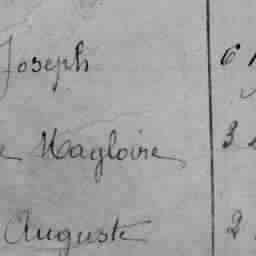 Joseph 6
Magloire 3
Auguste 2